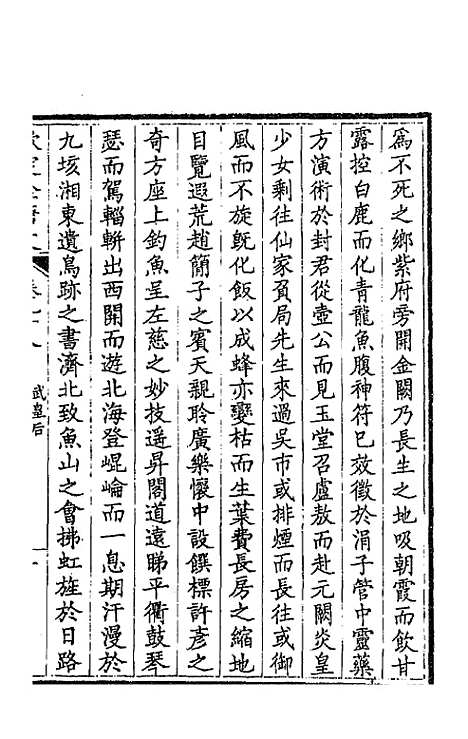 為不死之鄉紫府旁開金闕乃長生之地吸朝霞而飲甘
露控白鹿而化青龍魚腹神符已效徵於涓子管中靈藥
方演術於封君從壺公而見玉堂召盧敖而赴元闕炎皇
少女剩往仙家負局先生來過吳市或排煙而長往或御
風而不旋既化飯以成蜂亦變枯而生葉費長房之縮地
目覽遐荒趙簡子之賓天親聆廣樂懷中設饌標許彥之
奇方座上釣魚呈左慈之妙技遥昇閣道遠睇平衢鼓琴
瑟而駕輜軿出西關而遊北海登崐崘而一息期汗漫於
九垓湘東遺鳥跡之書濟北致魚山之會拂虹旌於日路
武皇后